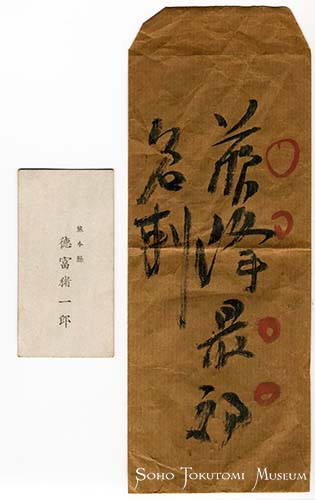 蘇峰最初
名刺
熊本縣
徳富猪一郎
SOHO TOKUTOMI MUSEUM